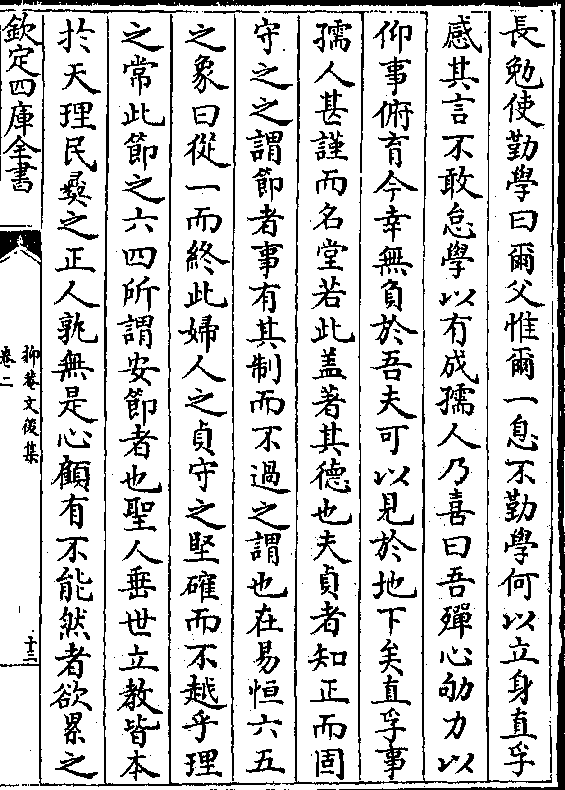 長勉使勤學曰爾父惟爾一息不勤學何以立身直孚
感其言不敢怠學以有成孺人乃喜曰吾殫心劬力以
仰事俯育今幸無負於吾夫可以見於地下矣直孚事
孺人甚謹而名堂若此盖著其德也夫貞者知正而固
守之之謂節者事有其制而不過之謂也在易恒六五
之象曰從一而終此婦人之貞守之堅確而不越乎理
之常此節之六四所謂安節者也聖人垂世立教皆本
於天理民彛之正人孰無是心顧有不能然者欲累之
欽定四庫全書
抑菴文後集
卷二
十三